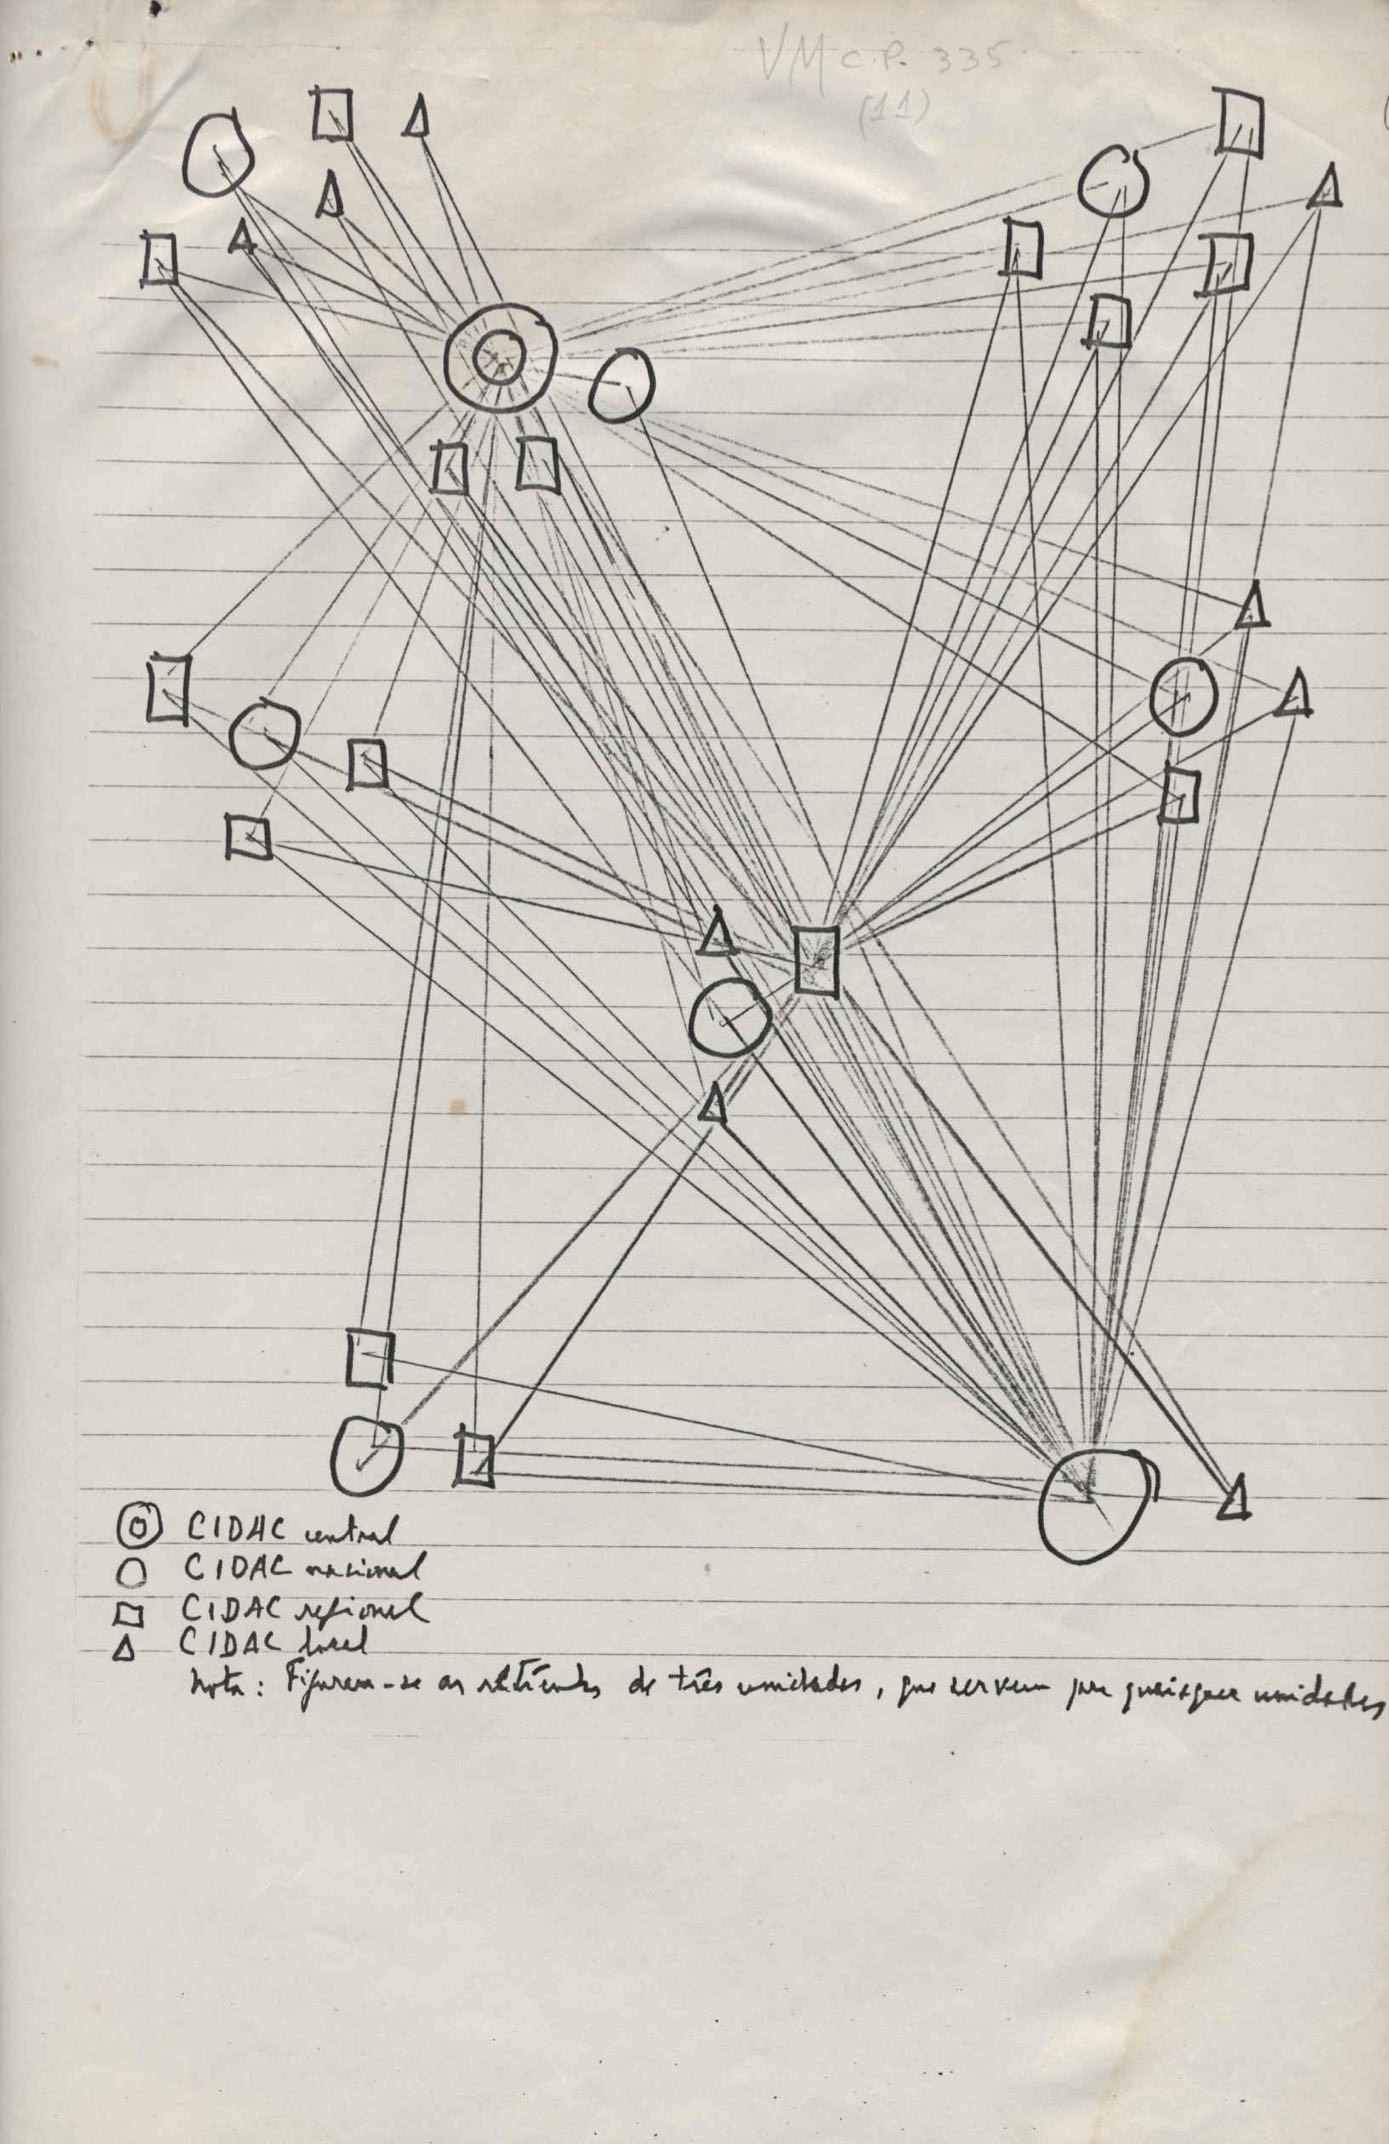 VM C.P. 335
(11)
CIDAC central
CIDAC nacional
CIDAC regional
CIDAC local
Nota: Figuram-se as de três unidades, que servem para quaisquer unidades